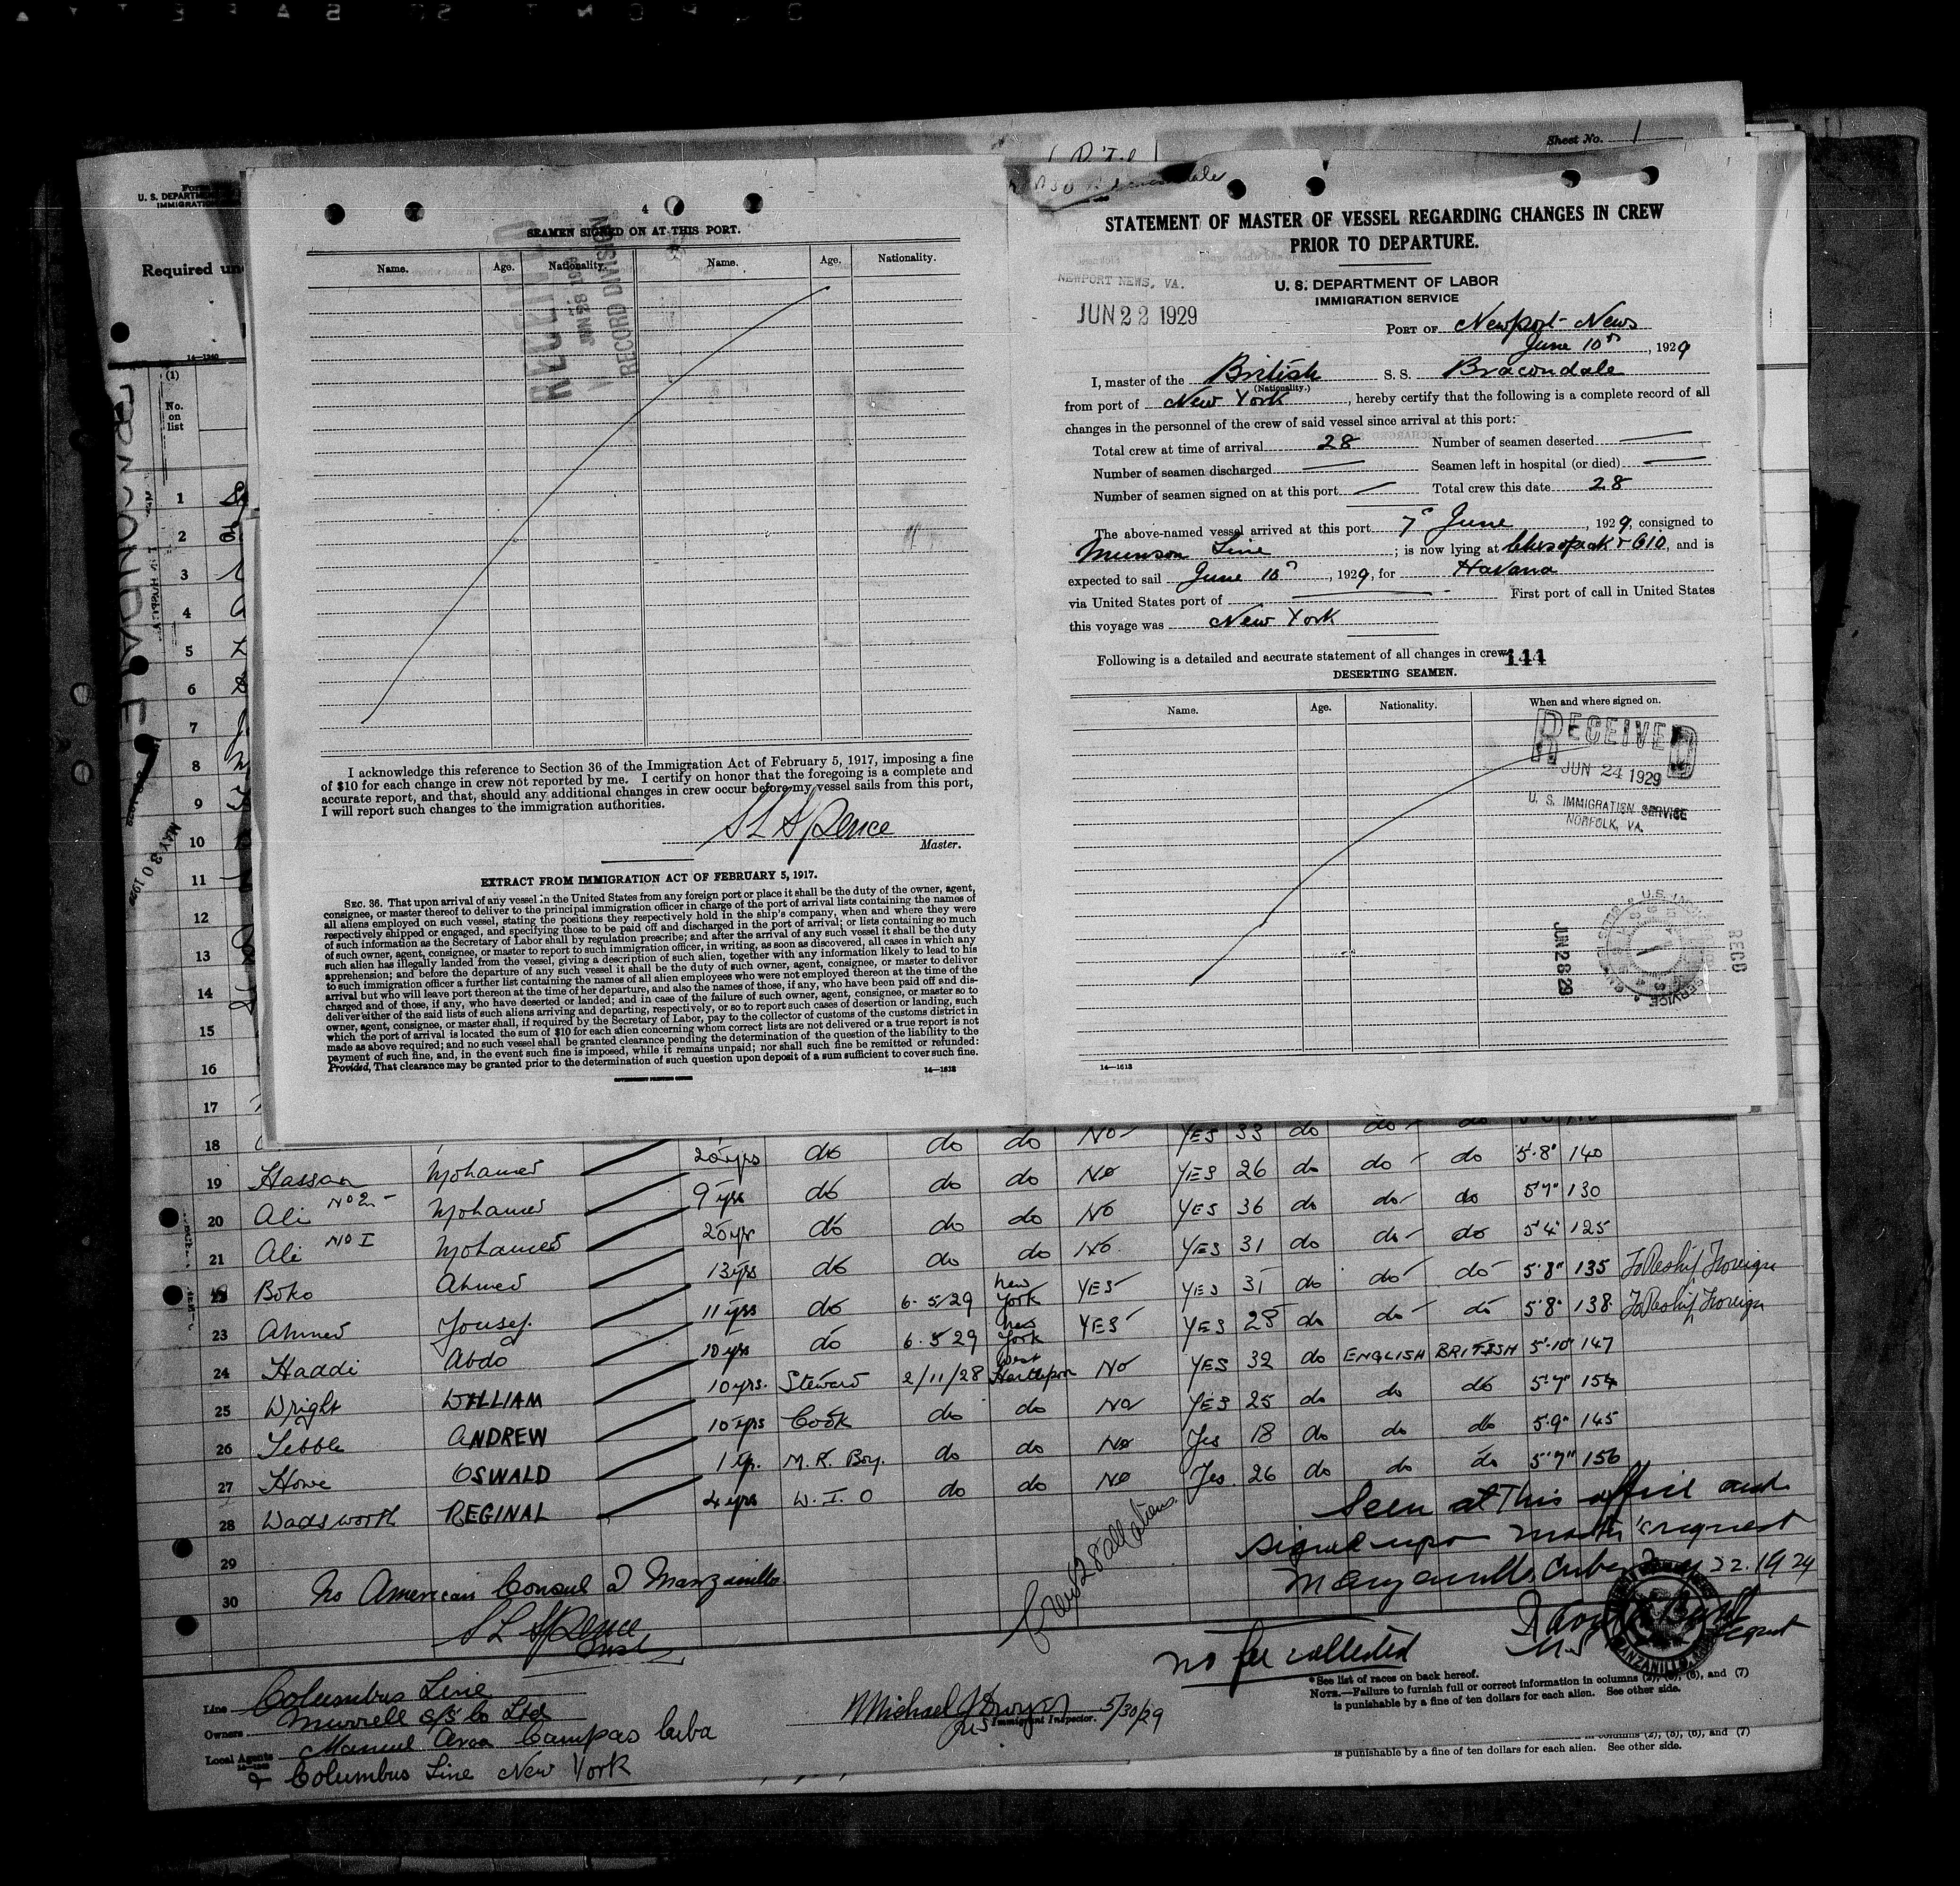 Sheet No. 1
U. S. DEPARTM
IMMIGRATI
Required un
14—1240
(1)
No.
on
list
BRACONDALE
4
SEAMEN SIGNED ON AT THIS PORT.
Name. Age. Nationality. Name. Age. Nationality.
RECEIVED
JUN 28 1929
RECORD DIVISION
I acknowledge this reference to Section 36 of the Immigration Act of February 5, 1917, imposing a fine
of $10 for each change in crew not reported by me. I certify on honor that the foregoing is a complete and
accurate report, and that, should any additional changes in crew occur before my vessel sails from this port,
I will report such changes to the immigration authorities.
S L Spence
Master.
EXTRACT FROM IMMIGRATION ACT OF FEBRUARY 5, 1917.
SEC. 36. That upon arrival of any vessel in the United States from any foreign port or place it shall be the duty of the owner, agent,
consignee, or master thereof to deliver to the principal immigration officer in charge of the port of arrival lists containing the names of
all aliens employed on such vessel, stating the positions they respectively hold in the ship's company, when and where they were
respectively shipped or engaged, and specifying those to be paid off and discharged in the port of arrival; or lists containing so much
of such information as the Secretary of Labor shall by regulation prescribe; and after the arrival of any such vessel it shall be the duty
of such owner, agent, consignee, or master to report to such immigration officer, in writing, as soon as discovered, all cases in which any
such alien has illegally landed from the vessel, giving a description of such alien, together with any information likely to lead to his
apprehension; and before the departure of any such vessel it shall be the duty of such owner, agent, consignee, or master to deliver
to such immigration officer a further list containing the names of all alien employees who were not employed thereon at the time of the
arrival but who will leave port thereon at the time of her departure, and also the names of those, if any, who have been paid off and dis-
charged and of those, if any, who have deserted or landed; and in case of the failure of such owner, agent, consignee, or master so to
deliver either of the said lists of such aliens arriving and departing, respectively, or so to report such cases of desertion or landing, such
owner, agent, consignee, or master shall, if required by the Secretary of Labor, pay to the collector of customs of the customs district in
which the port of arrival is located the sum of $10 for each alien concerning whom correct lists are not delivered or a true report is not
made as above required; and no such vessel shall be granted clearance pending the determination of the question of the liability to the
payment of such fine, and, in the event such fine is imposed, while it remains unpaid; nor shall such fine be remitted or refunded:
Provided, That clearance may be granted prior to the determination of such question upon deposit of a sum sufficient to cover such fine.
GOVERNMENT PRINTING OFFICE
14—1613
STATEMENT OF MASTER OF VESSEL REGARDING CHANGES IN CREW
PRIOR TO DEPARTURE.
NEWPORT NEWS, VA.
JUN 22 1929
U. S. DEPARTMENT OF LABOR
IMMIGRATION SERVICE
PORT OF Newport News
June 10th, 1929
I, master of the British S. S. Bracondale
(Nationality.)
from port of New York, hereby certify that the following is a complete record of all
changes in the personnel of the crew of said vessel since arrival at this port:
Total crew at time of arrival 28 Number of seamen deserted —
Number of seamen discharged — Seamen left in hospital (or died) —
Number of seamen signed on at this port — Total crew this date 28
The above-named vessel arrived at this port 7 June, 1929, consigned to
Munson Line; is now lying at Chesapeak & O10, and is
expected to sail June 10, 1929, for Havana
via United States port of — First port of call in United States
this voyage was New York
Following is a detailed and accurate statement of all changes in crew 144
DESERTING SEAMEN.
Name. Age. Nationality. When and where signed on.
RECEIVED
JUN 24 1929
U. S. IMMIGRATION SERVICE
NORFOLK, VA.
JUN 28 29
RECD
14—1613
1
2
3
4
5
6
7
8
9
10
11
12
13
14
15
16
17
18 NO YES 33 do do do
19 Hassan Mohamed 20 yrs do do do NO YES 26 do do do 5'8" 140
20 Ali No 2 Mohamed 9 yrs do do do NO YES 36 do do do 5'7" 130
21 Ali No I Mohamed 20 yrs do do do NO YES 31 do do do 5'4" 125
Boko Ahmed 13 yrs do 6.5/29 new York YES YES 31 do do do 5'8" 135 To Reship Foreign
23 Ahmed Yousef 11 yrs do 6.5 29 new York YES YES 28 do do do 5'8" 138 To Reship Foreign
24 Haddi Abdo 10 yrs
25 Wright WILLIAM 10 yrs. Steward 2/11/28 West Hartlepool NO YES 32 do ENGLISH BRITISH 5'10" 147
26 Tebble ANDREW 10 yrs Cook do do NO YES 25 do do do 5'7" 154
27 Howe OSWALD 1 yr. M. R. Boy. do do NO Yes 18 do do do 5'9" 145
28 Wadsworth REGINAL 4 yrs W. T. O do do NO Yes 26 do do do 5'7" 156
29
30
No American Consul at Manzanillo
S L Spence
Crew 28 all aliens
Seen at This office and
signed upon master's request
Manzanillo, Cuba May 22. 1929
no fee collected
Line Columbus Line
Owners Murrell S/S Co Ltd
Local Agents Manuel Arca Campas Cuba
& Columbus Line New York
Michael J Dwyer 5/30/29
Immigrant Inspector.
*See list of races on back hereof.
NOTE.—Failure to furnish full or correct information in columns (2), (5), (6), and (7)
is punishable by a fine of ten dollars for each alien. See other side.
is punishable by a fine of ten dollars for each alien. See other side.